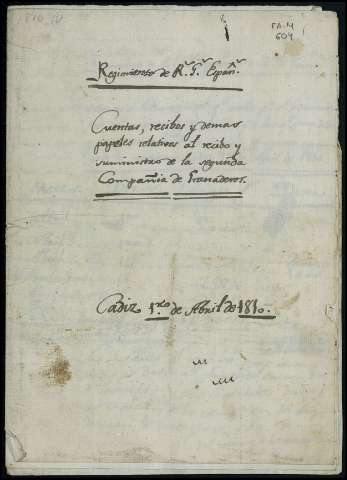 FA.M
604
Regimiento de R.s G.s Españ.s
Cuentas, recibos y demas
papeles relativos al recibo y
suministro de la segunda
Compañia de Granaderos.
Cadiz 1.ro de Abril de 1810.